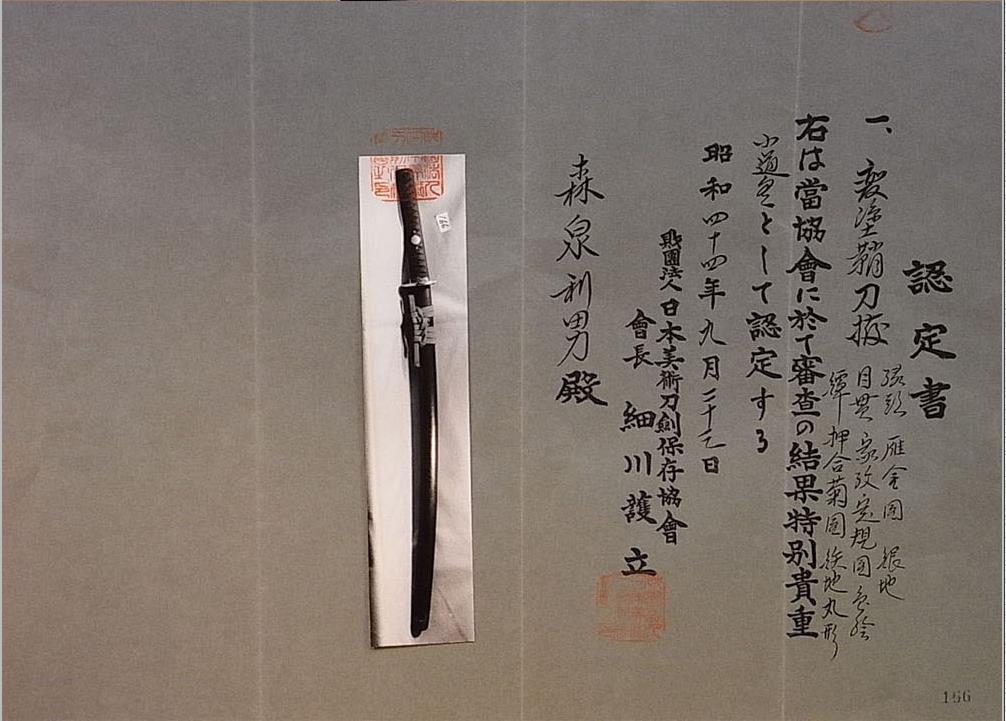 認定書
一、変塗鞘刀拵
縁頭 雁金図 銀地
目貫 家政定規図 色絵
鐔 押合菊図 鉄地丸形
右は當協會に於て審査の結果特別貴重
小道具として認定する
昭和四十四年九月二十三日
財團法人日本美術刀劍保存協會
會長 細川護立
森泉利男殿
166